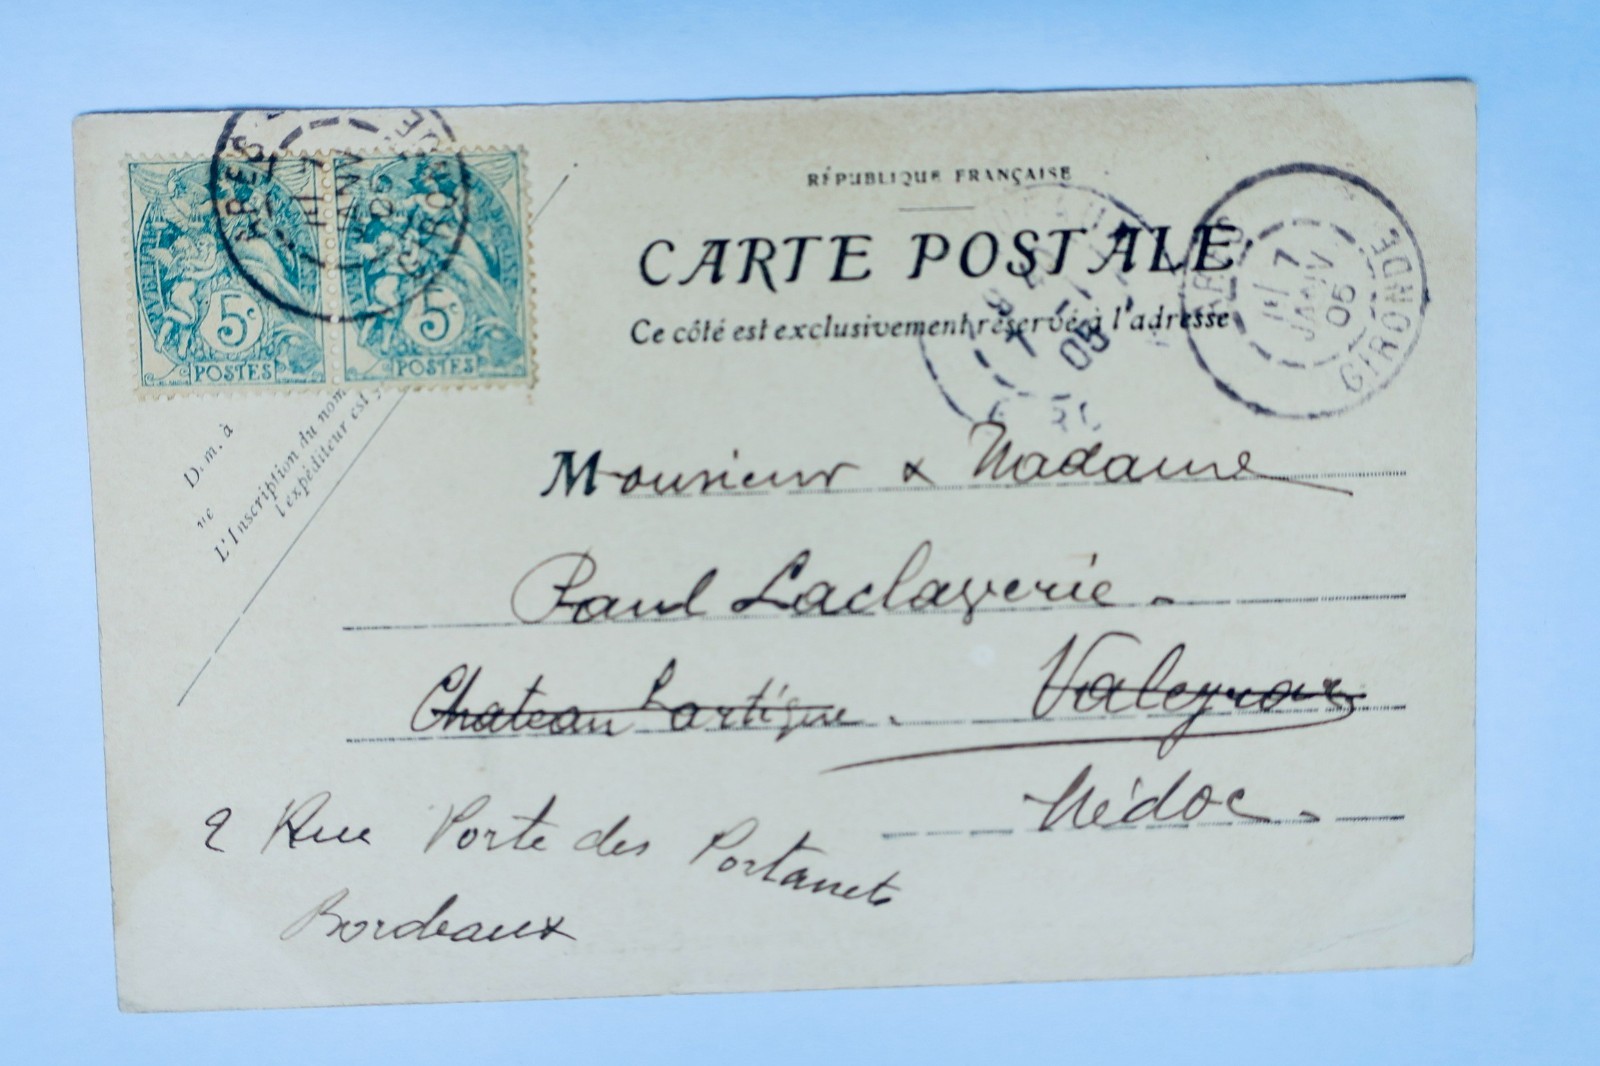 RÉPUBLIQUE FRANÇAISE
CARTE POSTALE
Ce côté est exclusivement réservé à l'adresse
5c 5c
POSTES POSTES
ARÈS GIRONDE
7 JANV 05
ARÈS GIRONDE
7 JANV 05
05
D. m. à
L'Inscription du nom
l'expéditeur est
Monsieur & Madame
Paul Laclaverie.
Chateau Lartigue. Valeyrac
Médoc.
2 Rue Porte des Portanets
Bordeaux